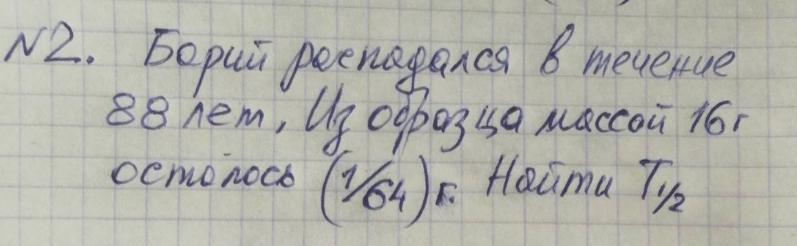 N2. Борий распадался в течение
88 лет, Из образца массой 16г
осталось (1/64) г. Найти T1/2